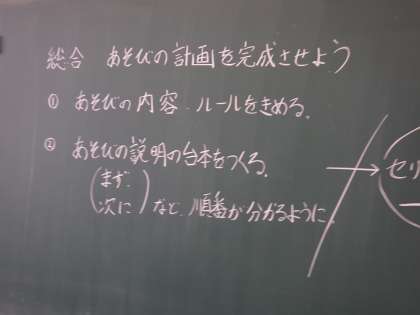 総合 あそびの計画を完成させよう
① あそびの内容・ルールをきめる。
② あそびの説明の台本をつくる。
(まず、
次に)など、順番が分かるように
セリ